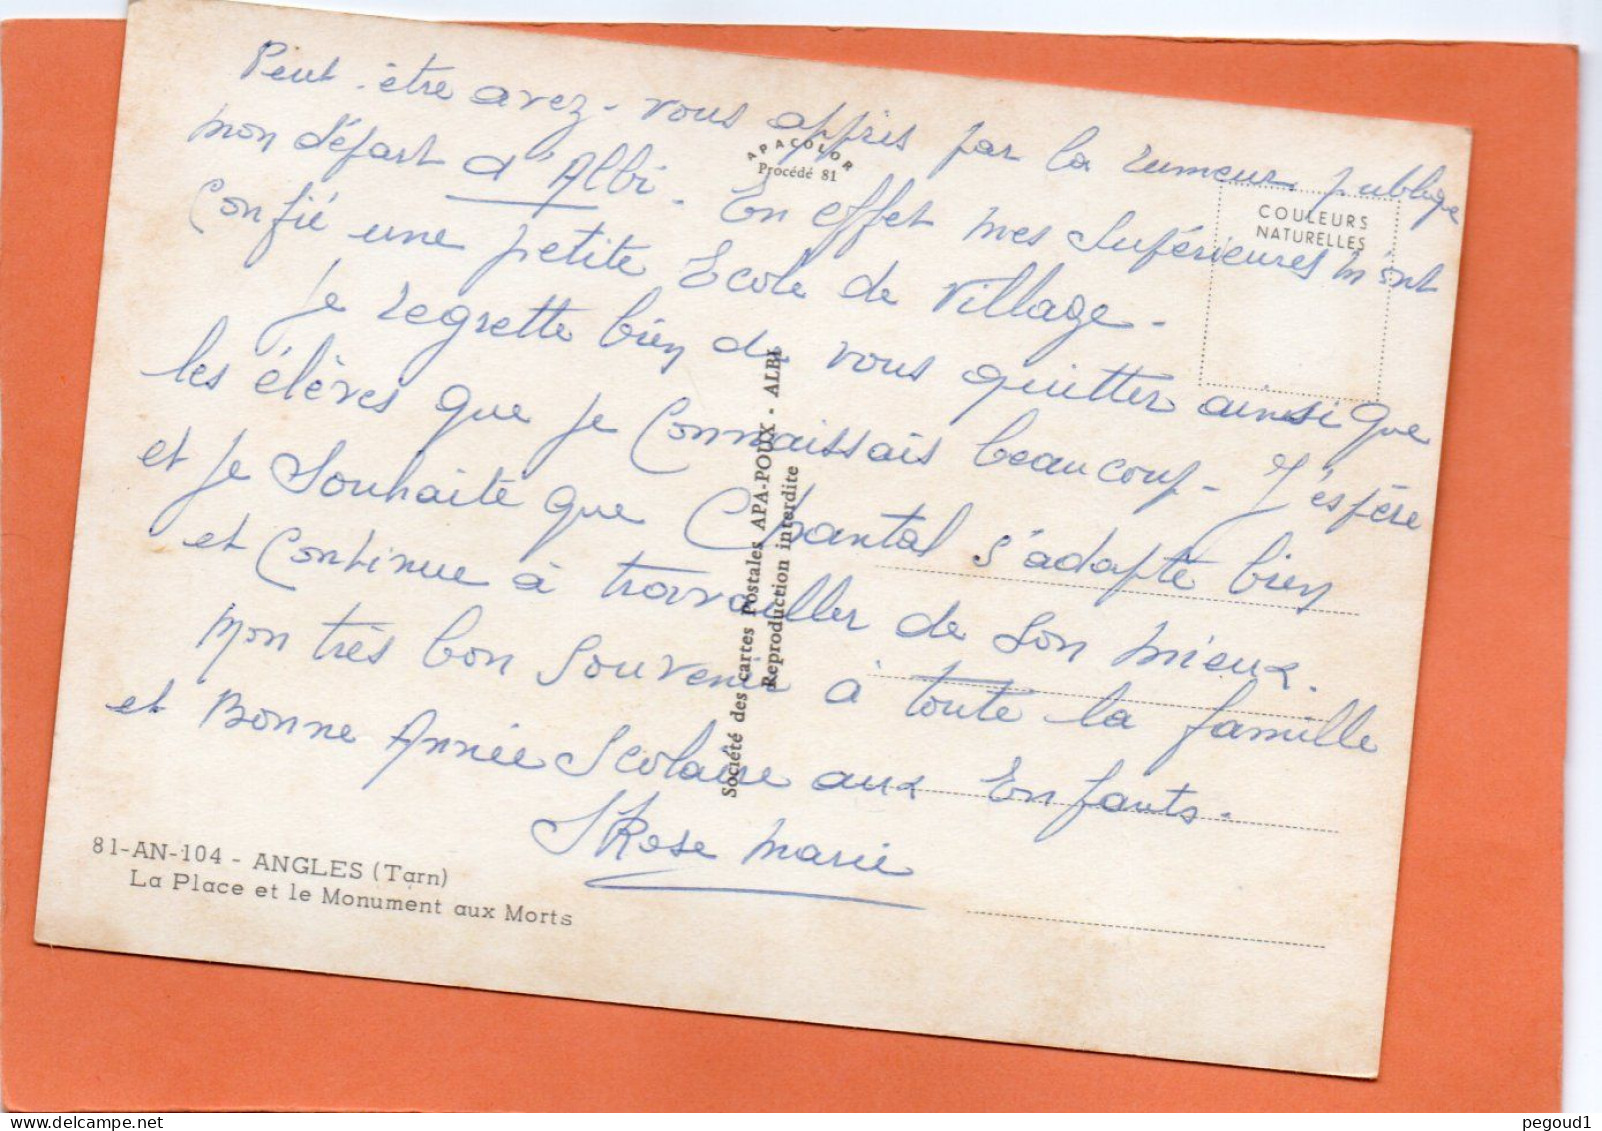 Peut-être avez-vous appris par la rumeur publique
mon départ d'Albi. En effet mes Supérieures m'ont
Confié une petite Ecole de Village.
Je regrette bien de vous quitter ainsi que
les élèves que je Connaissais beaucoup. J'espère
et je Souhaite que Chantal s'adapte bien
et Continue à travailler de Son mieux.
Mon très bon Souvenir à toute la famille
et Bonne Année Scolaire aux Enfants.
S Rose Marie
APACOLOR
Procédé 81
COULEURS
NATURELLES
Société des cartes Postales APA-POUX - ALBI
Reproduction interdite
81-AN-104 - ANGLES (Tarn)
La Place et le Monument aux Morts
pegoud1